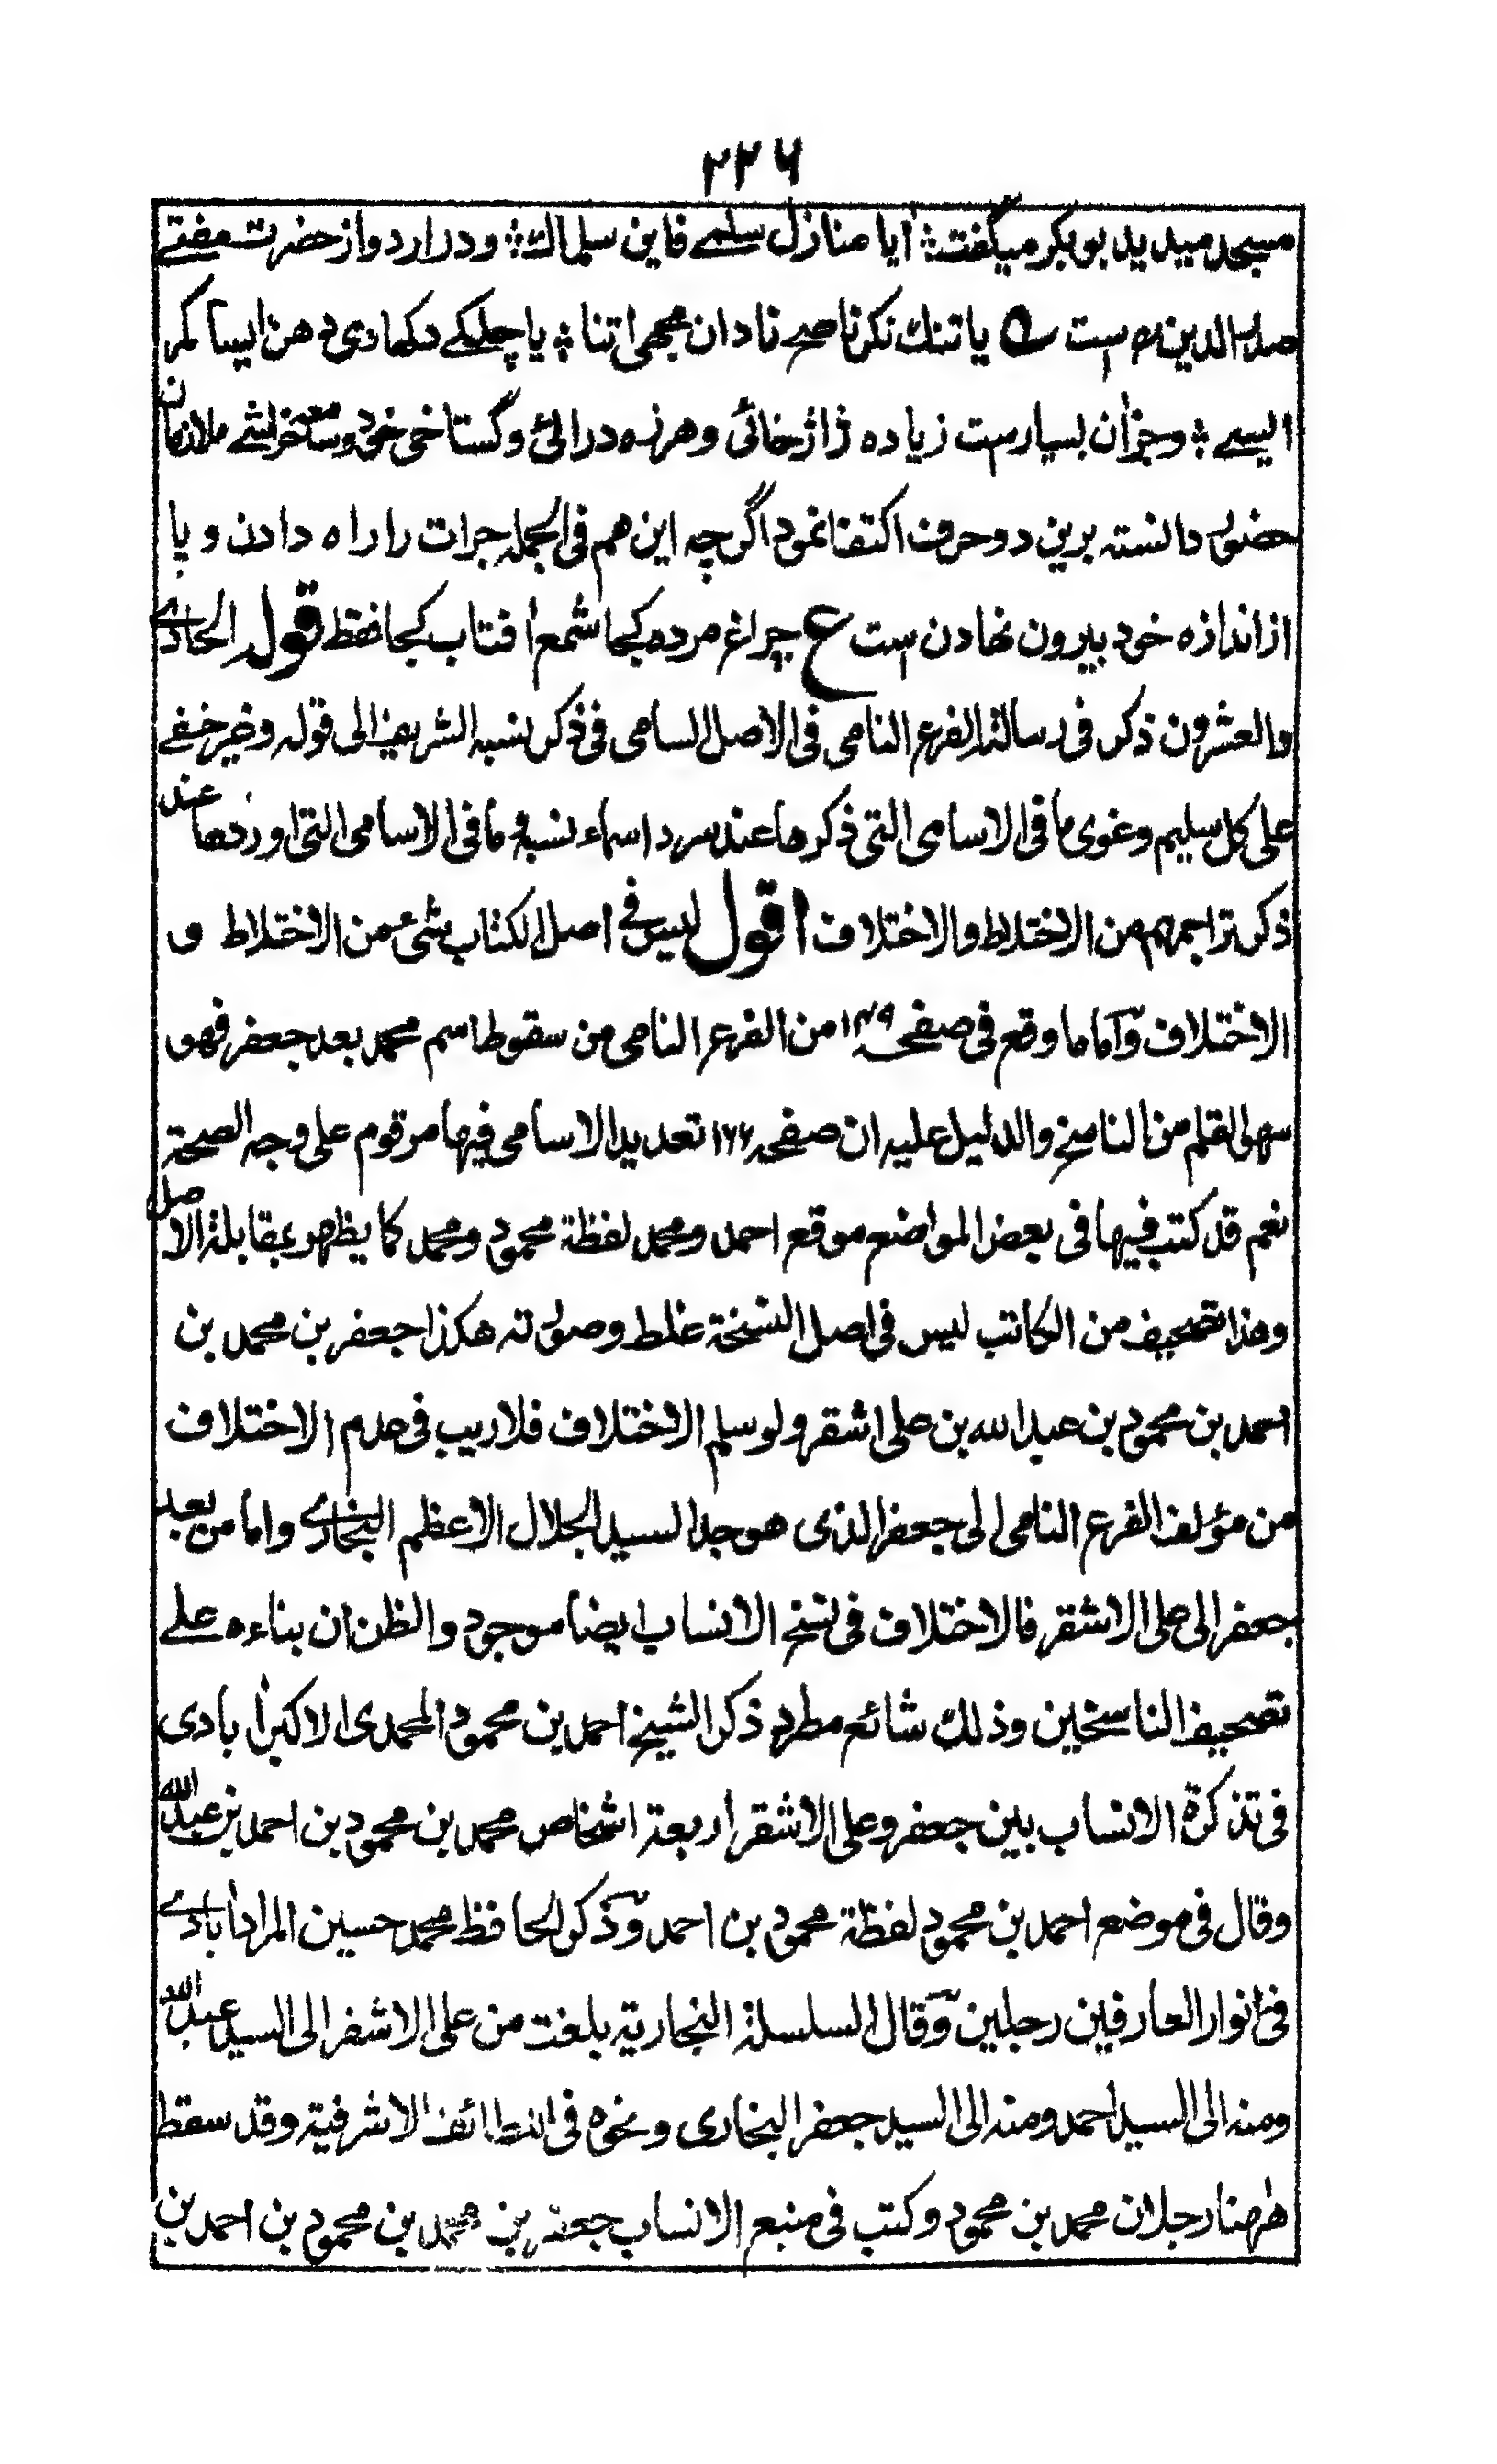 ۲۲۶
مسجد میدید بو بکر میگفت ؛ ایا منازل سلمے فاین سلماك ؛ و در اردو از حضرت مفتے
صدر الدین ست ؎ یا تنك نکر ناصح نادان مجھی اتنا ؛ یا چلکے دکھا دی دھن ایسا کمر
ایسے ؛ وجزآن بسیارست زیاده ژاژخائی و هرزه درائی و گستاخی خود و سمعخراشے ملازمان
حضور دانسته برین دو حرف اکتفا نمود اگرچه این هم فی الجمله جرات را راه دادن و پا
از اندازه خود بیرون نهادن ست ع چراغ مرده کجا شمع افتاب کجا فقط قوله الحادے
والعشرون ذکر فی رسالة الفرع النامی فی الاصل السامی فی ذکر نسبه الشریف الی قوله وغیر خفے
علی کل سلیم وغوی ما فی الاسامی التی ذکرها عند سرد اسماء نسبه و ما فی الاسامی التی اوردها عند
ذکر تراجمهم من الاختلاط والاختلاف اقول لیس فے اصل الکتاب شیء من الاختلاط و
الاختلاف وآما ما وقع فی صفحه ۱۴۹ من الفرع النامی من سقوط اسم محمد بعد جعفر فهو
سهو القلم من الناسخ والدلیل علیه ان صفحه ۱۲۲ تعدید الاسامی فیها مرقوم علی وجه الصحة
نعم قد کتب فیها فی بعض المواضع موقع احمد ومحمد لفظة محمود ومحمد کما یظهر بمقابلة الاصل
وهذا تصحیف من الکاتب لیس فی اصل النسخة غلط وصورته هکذا جعفر بن محمد بن
احمد بن محمود بن عبد الله بن علی اشقر ولو سلم الاختلاف فلا ریب فی عدم الاختلاف
من مؤلف الفرع النامی الی جعفر الذی هو جد السید الجلال الاعظم البخارے واما من بعد
جعفر الی علی الاشقر فالاختلاف فی نسخ الانساب ایضا موجود والظن ان بناءه علے
تصحیف الناسخین وذلك شائع مطرد ذکر الشیخ احمد بن محمود المحمدی الاکبرآبادی
فی تذکرة الانساب بین جعفر وعلی الاشقر اربعة اشخاص محمد بن محمود بن احمد بن عبد الله
وقال فی موضع احمد بن محمود لفظة محمود بن احمد وذکر الحافظ محمد حسین المرادآبادے
فی انوار العارفین رجلین وقال السلسلة البخاریة بلغت من علی الاشقر الی السید عبد الله
ومنه الی السید احمد ومنه الی السید جعفر البخاری ونحوه فی اللطائف الاشرفیة وقد سقط
ههنا رجلان محمد بن محمود وکتب فی منبع الانساب جعفر بن محمد بن محمود بن احمد بن